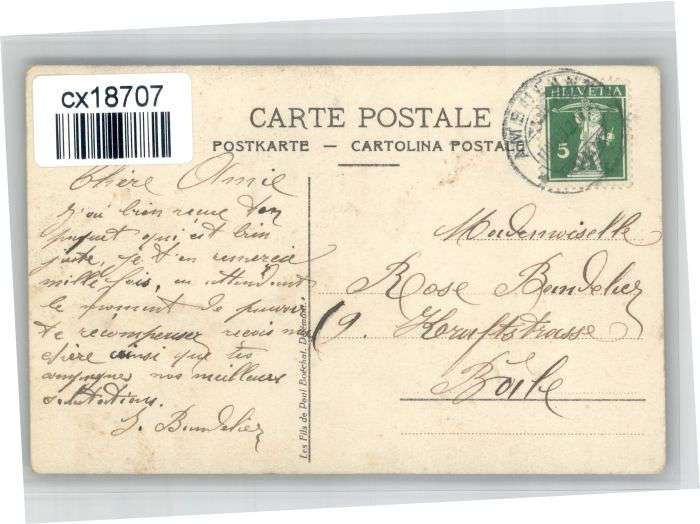 cx18707
CARTE POSTALE
POSTKARTE — CARTOLINA POSTALE
HELVETIA
5
Chère Amie
J'ai bien recue ton
paquet qui est bien
juste, je t'en remercie
mille fois, en attendant
le moment de pouvoir
te récompenser recois ma
chère ainsi que tes
compagnes nos meilleurs
salutations.
S. Bandelier
Les Fils de Paul Bœchat, Delémont.
Mademoiselle
Rose Bandelier
19. Kraftstrasse
Bâle